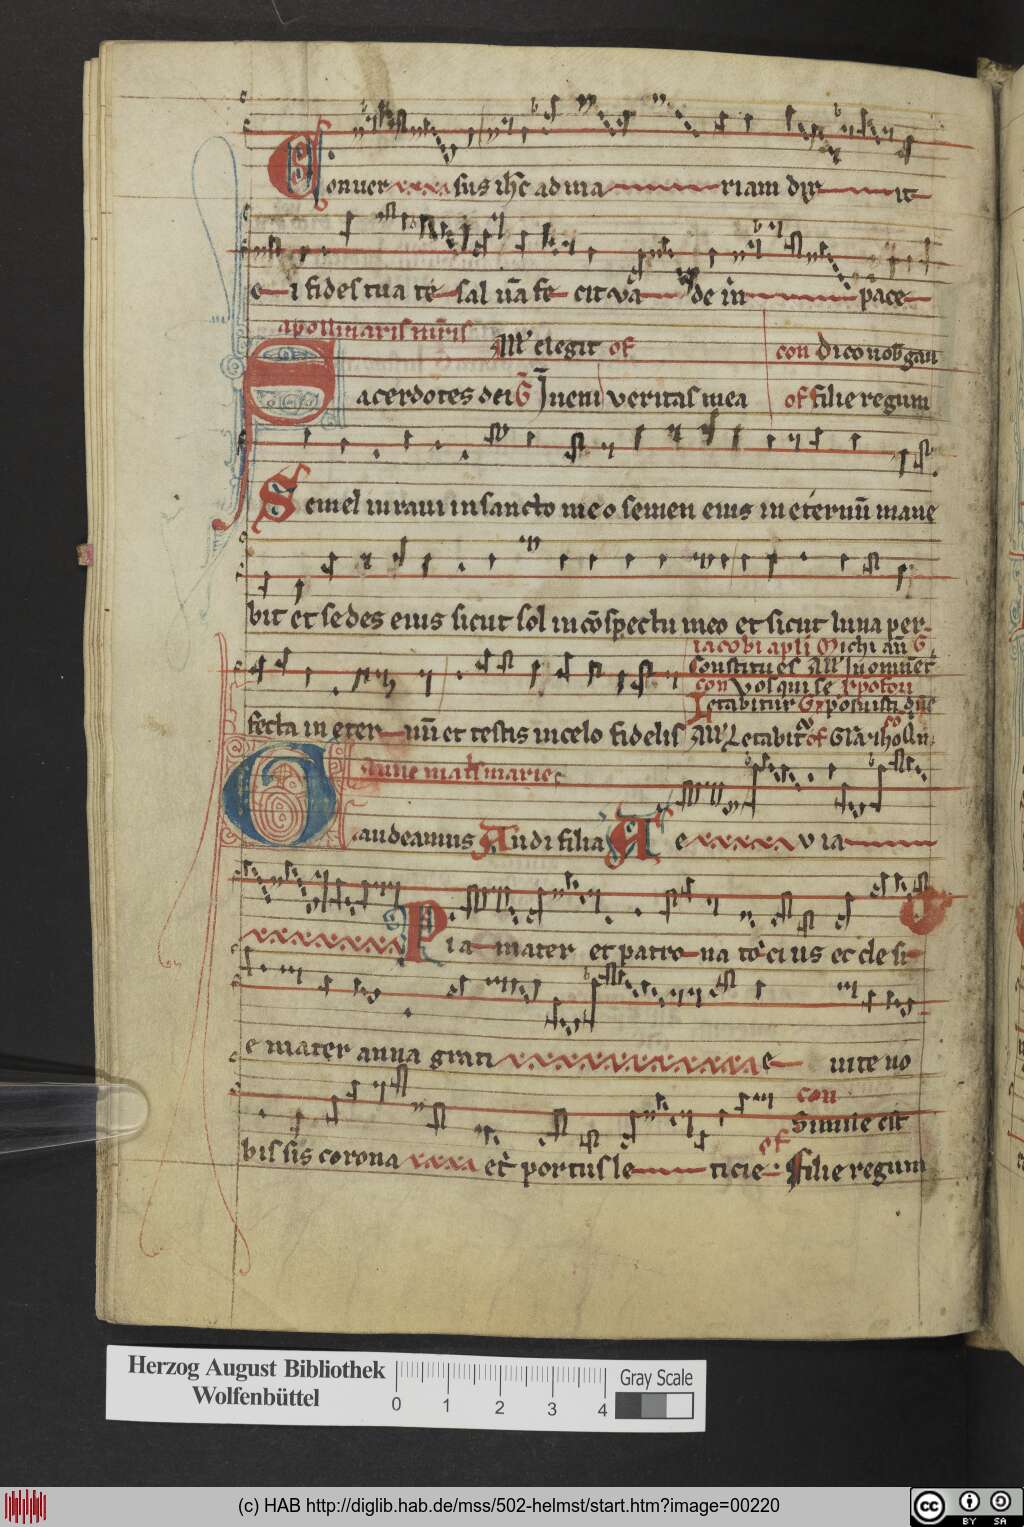 Conuersus ihc ad mariam dixit
ei fides tua te saluā fecit vade in pace
apollinaris mris
All' elegit of con dico uob gau
Sacerdotes dei G Inueni veritas mea of filie regum
Semel iuraui in sancto meo semen eius in eternū mane
bit et sedes eius sicut sol in cōspectu meo et sicut luna per
iacobi apli Michi aū G
Constitues All' In omnē t
con vos qui se
Letabitur Gr posuisti dne
fecta in eternū et testis in celo fidelis All' Letabit of Gla
Anne mats marie
Gaudeamus Audi filia A e v ia
Pia mater et patrona tocius ecclesi
e mater anna grati e uite uo
con
bis sis corona et portus leticie Simile est
of Filie regum
Herzog August Bibliothek
Wolfenbüttel
0 1 2 3 4
Gray Scale
(c) HAB http://diglib.hab.de/mss/502-helmst/start.htm?image=00220
cc BY SA